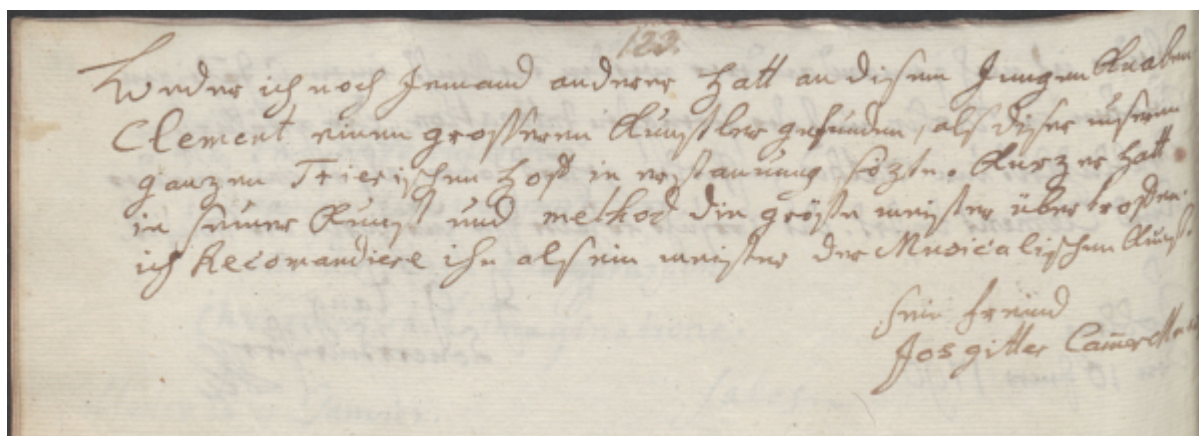 123.
Weder ich noch Jemand anderer hatt an disem Jungen Knaben
Clement einen grosseren Künstler gefunden, als diser unseren
ganzen Trierischen Hoff in erstaunung sezte. Kurz er hatt
in seiner Kunst und method die gröste meister übertroffen.
ich Recomandiere ihn als ein meister der Musicalischen Kunst.
sein freünd
Jos gitter